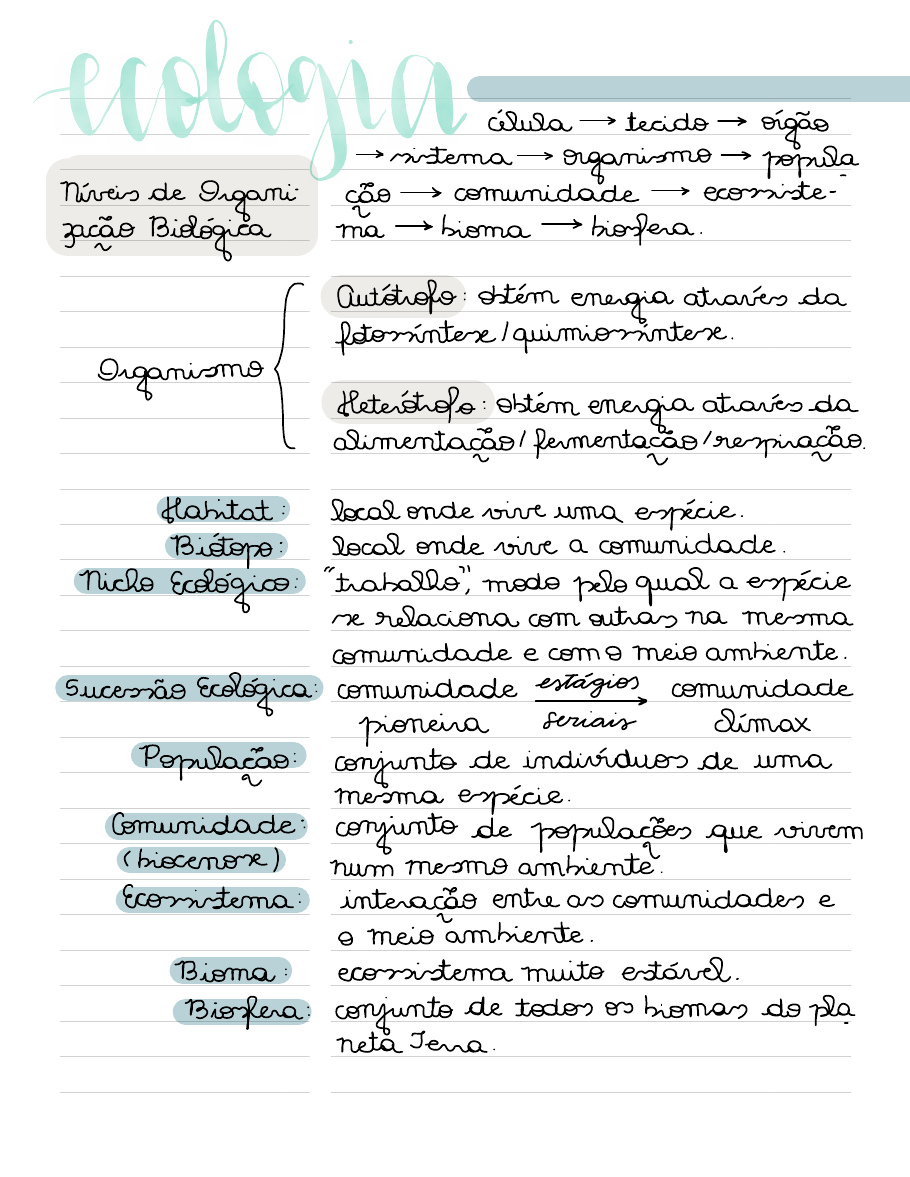 ecologia
célula → tecido → órgão
→ sistema → organismo → popula
Níveis de Organi-
ção → comunidade → ecossiste-
zação Biológica
ma → bioma → biosfera.
Autótrofo: obtém energia através da
fotossíntese/quimiossíntese.
Organismo
Heterótrofo: obtém energia através da
alimentação/fermentação/respiração.
Habitat: local onde vive uma espécie.
Biótopo: local onde vive a comunidade.
Nicho Ecológico: "trabalho", modo pelo qual a espécie
se relaciona com outras na mesma
comunidade e com o meio ambiente.
Sucessão Ecológica: comunidade estágios comunidade
pioneira seriais → clímax
População: conjunto de indivíduos de uma
mesma espécie.
Comunidade: conjunto de populações que vivem
(biocenose) num mesmo ambiente.
Ecossistema: interação entre as comunidades e
o meio ambiente.
Bioma: ecossistema muito estável.
Biosfera: conjunto de todos os biomas do pla
neta Terra.